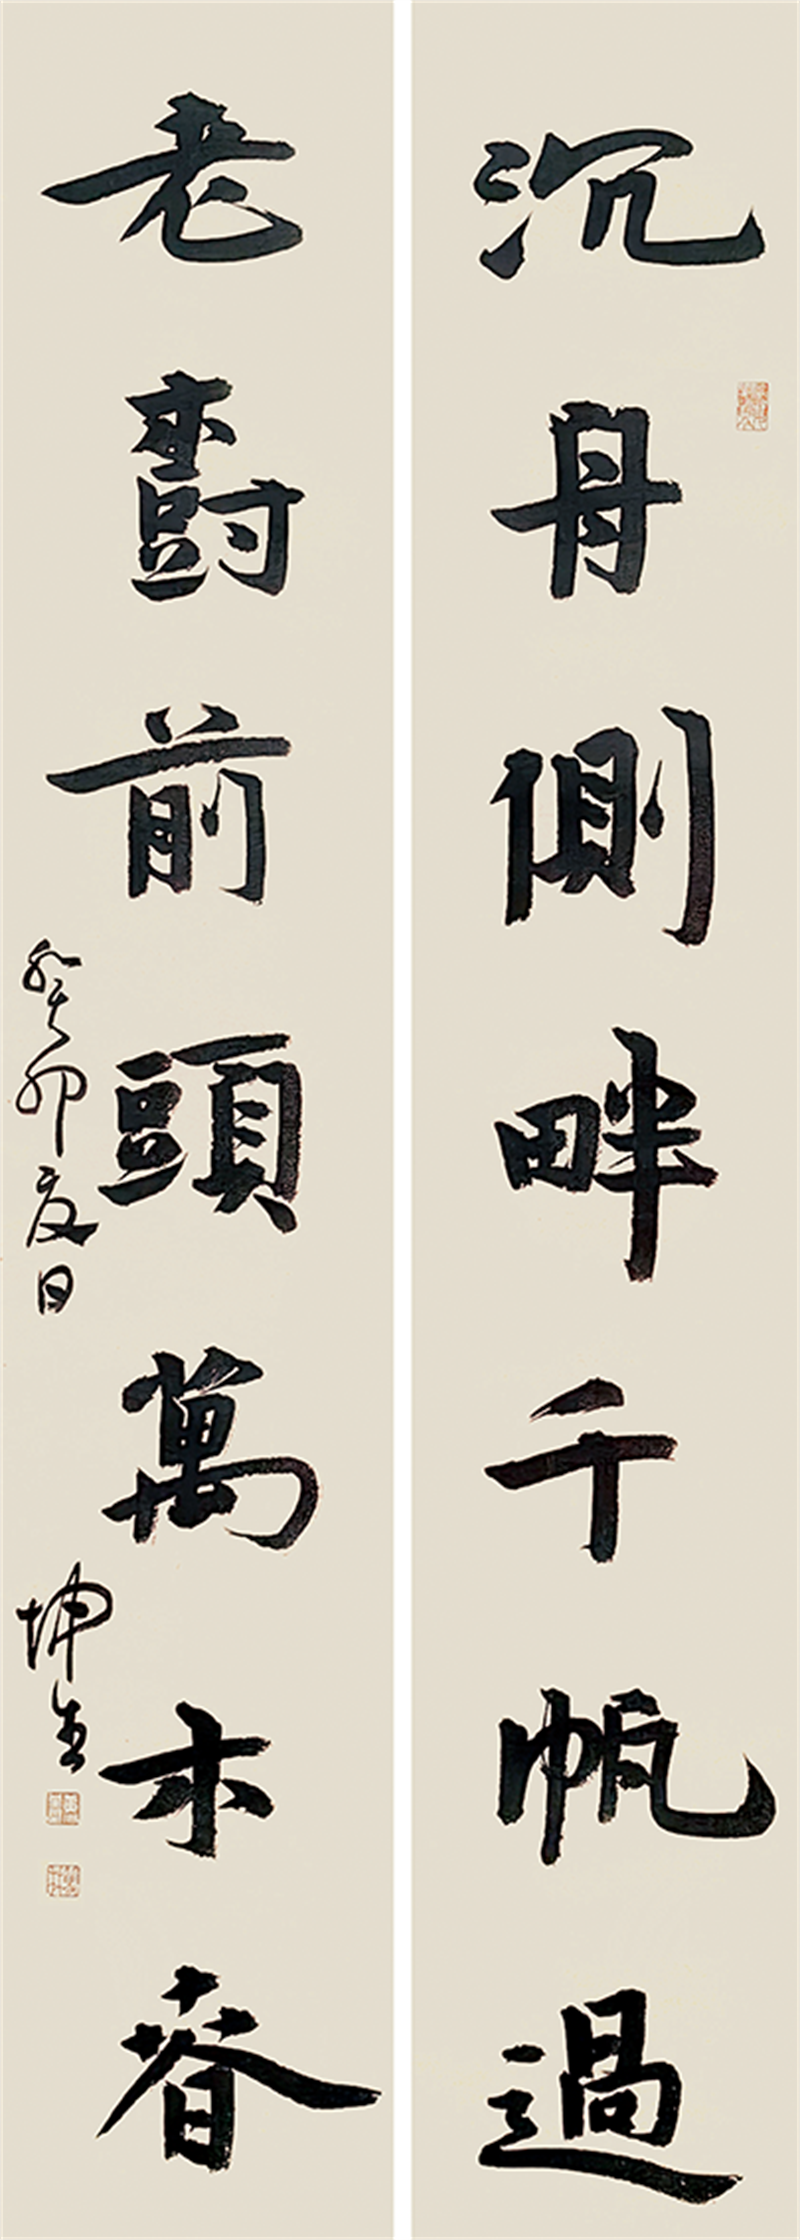 沉舟側畔千帆過
老樹前頭萬木春
癸卯夏日
坤生